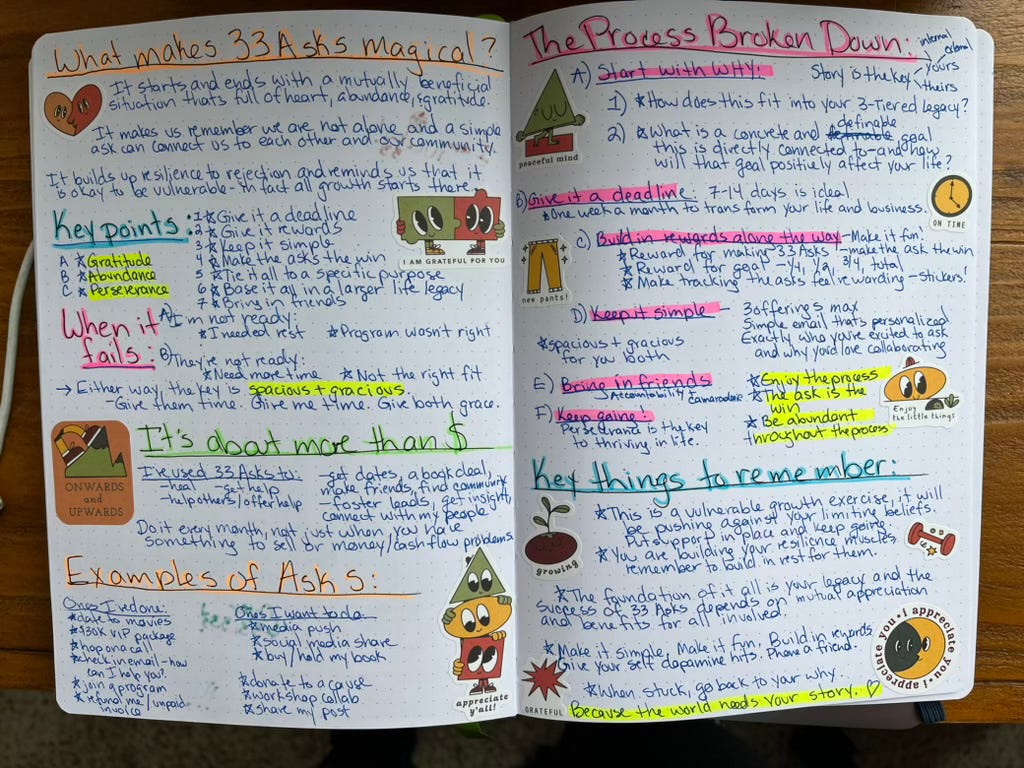 What makes 33 Asks magical?
It starts and ends with a mutually beneficial
situation thats full of heart, abundance, & gratitude.
It makes us remember we are not alone and a simple
ask can connect us to each other and our community.
It builds up resilience to rejection and reminds us that it
is okay to be vulnerable - in fact all growth starts there
Key points:
A * Gratitude
B * Abundance
C * Perseverance
1 * Give it a deadline
2 * Give it rewards
3 * Keep it simple
4 * Make the asks the win
5 * Tie it all to a specific purpose
6 * Base it all in a larger life legacy
7 * Bring in friends
I AM GRATEFUL FOR YOU
When it
fails:
A) I'm not ready:
* I needed rest * Program wasn't right
B) They're not ready:
* Need more time * Not the right fit
→ Either way, the key is spacious + gracious.
- Give them time. Give me time. Give both grace.
ONWARDS
and
UPWARDS
It's about more than $
I've used 33 Asks to:
- heal - get help
- help others/offer help
- get dates, a book deal,
make friends, find community
foster leads, get insight,
connect with my people
Do it every month, not just when you have
something to sell or money/cash flow problems.
Examples of Asks:
Ones I've done:
* date to movies
* $30K VIP package
* hop on a call
* check in email - how
can I help you?
* join a program
* refund me/unpaid
invoice
Ones I want to do:
* media push
* social media share
* buy/hold my book
* donate to a cause
* workshop collab
* share my post
appreciate
y'all!
The Process Broken Down:
A) Start with WHY:
Story is the key
internal
external
yours
theirs
1) * How does this fit into your 3-Tiered legacy?
definable
2) * What is a concrete and goal
this is directly connected to - and how
will that goal positively affect your life?
peaceful mind
B) Give it a deadline: 7-14 days is ideal
* One week a month to transform your life and business.
ON TIME
C) Build in rewards alone the way - Make it fun!
* Reward for making 33 Asks - make the ask the win
* Reward for goal - 1/4, 1/2, 3/4, total
* Make tracking the asks feel rewarding - stickers!
new pants!
D) Keep it simple
* spacious + gracious
for you both
3 offerings max
Simple email that's personalized
Exactly who you're excited to ask
and why you'd love collaborating
E) Bring in friends
Accountability + camaraderie
F) Keep gaine!
Perseverance is the key
to thriving in life.
* Enjoy the process
* The ask is the
win
* Be abundant
throughout the process
Enjoy
the little things
Key things to remember:
* This is a vulnerable growth exercise, it will
be pushing against your limiting beliefs.
Put support in place and keep going.
* You are building your resilience muscles,
remember to build in rest for them.
growing
* The foundation of it all is your legacy and the
success of 33 Asks depends on mutual appreciation
and benefits for all involved.
* Make it simple, Make it fun, Build in rewards
Give your self dopamine hits. Phone a friend.
* When stuck, go back to your why.
Because the world needs your story. ♡
GRATEFUL
i appreciate you • i appreciate you •